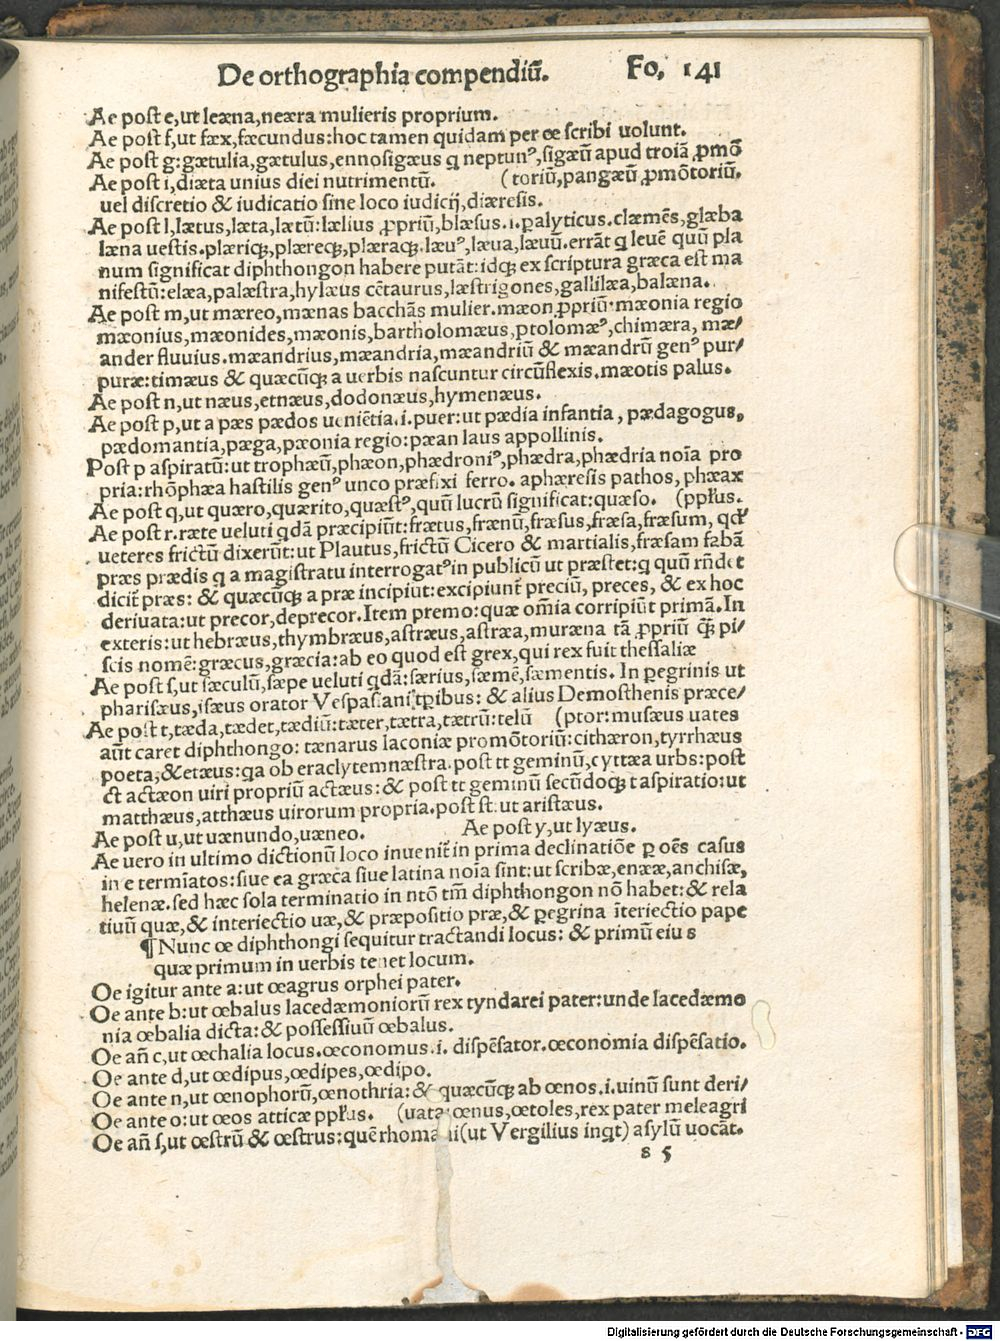 De orthographia compendiū. Fo, 141
Ae post e, ut leæna, neæra mulieris proprium.
Ae post f, ut fæx, fæcundus: hoc tamen quidam per œ scribi uolunt.
Ae post g: gætulia, gætulus, ennosigæus q neptunꝰ, sigæū apud troiā ꝓmō
Ae post i, diæta unius diei nutrimentū. (toriū, pangæū ꝓmōtoriū.
uel discretio & iudicatio sine loco iudicij, diæresis.
Ae post l, lætus, læta, lætū: lælius ꝓpriū, blæsus .i. ꝑalyticus. clæmēs, glæba
læna uestis. plæriqꝫ, plæreqꝫ, plæraqꝫ. læuꝰ, læua, læuū. errāt q leuē quū pla
num significat diphthongon habere putāt: idqꝫ ex scriptura græca est ma
nifestū: elæa, palæstra, hylæus cētaurus, læstrigones, gallilæa, balæna.
Ae post m, ut mæreo, mænas bacchās mulier. mæon ꝓpriū. mæonia regio
mæonius, mæonides, mæonis, bartholomæus, ptolomæꝰ, chimæra, mæ/
ander fluuius. mæandrius, mæandria, mæandriū & mæandrū genꝰ pur/
puræ: timæus & quæcūqꝫ a uerbis nascuntur circūflexis. mæotis palus.
Ae post n, ut næus, etnæus, dodonæus, hymenæus.
Ae post p, ut a pæs pædos ueniētia .i. puer: ut pædia infantia, pædagogus,
pædomantia, pæga, pæonia regio: pæan laus appollinis.
Post p aspiratū: ut trophæū, phæon, phædroniꝰ, phædra, phædria noīa pro
pria: rhōphæa hastilis genꝰ unco præfixi ferro. aphæresis pathos, phæax
Ae post q, ut quæro, quærito, quæstꝰ, quū lucrū significat: quæso. (ppłus.
Ae post r. ræte ueluti qdā præcipiūt: frætus, frænū, fræsus, fræsa, fræsum, qď
ueteres frictū dixerūt: ut Plautus, frictū Cicero & martialis, fræsam fabā
præs prædis q a magistratu interrogatꝰ in publicū ut præstet: q quū rñdet
dicit præs: & quæcūqꝫ a præ incipiūt: excipiunt preciū, preces, & ex hoc
deriuata: ut precor, deprecor. Item premo: quæ omīa corripiūt primā. In
exteris: ut hebræus, thymbræus, astræus, astræa, muræna tā ꝓpriū q̄ꝫ pi/
scis nomē: græcus, græcia: ab eo quod est grex, qui rex fuit thessaliæ
Ae post s, ut sæculū, sæpe ueluti qdā: særius, sæmē, sæmentis. In ꝑegrinis ut
pharisæus, isæus orator Vespasiani tꝑibus: & alius Demosthenis præce/
Ae post t, tæda, tædet, tædiū: tæter, tætra, tætrū: telū (ptor: musæus uates
aūt caret diphthongo: tænarus laconiæ promōtoriū: cithæron, tyrrhæus
poeta, & etæus: qa ob eraclytemnæstra. post tt geminū, cyttæa urbs: post
ct actæon uiri propriū actæus: & post tt geminū secūdoqꝫ t aspiratio: ut
matthæus, atthæus uirorum propria. post st: ut aristæus.
Ae post u, ut uænundo, uæneo. Ae post y, ut lyæus.
Ae uero in ultimo dictionū loco inuenit̄ in prima declinatiōe ꝑ oēs casus
in e termīatos: siue ea græca siue latina noīa sint: ut scribæ, enææ, anchisæ,
helenæ. sed hæc sola terminatio in ntō tm̄ diphthongon nō habet: & rela
tiuū quæ, & interiectio uæ, & præpositio præ, & ꝑegrina īteriectio pape
¶ Nunc œ diphthongi sequitur tractandi locus: & primū eius
quæ primum in uerbis tenet locum.
Oe igitur ante a: ut œagrus orphei pater.
Oe ante b: ut œbalus lacedæmoniorū rex tyndarei pater: unde lacedæmo
nia œbalia dicta: & possessiuū œbalus.
Oe añ c, ut œchalia locus. œconomus .i. dispēsator. œconomia dispēsatio.
Oe ante d, ut œdipus, œdipes, œdipo.
Oe ante n, ut œnophorū, œnothria: & quæcūqꝫ ab œnos .i. uinū sunt deri/
Oe ante o: ut œos atticæ ppłus. (uata: œnus, œtoles, rex pater meleagri
Oe añ s, ut œstrū & œstrus: quē rhomani (ut Vergilius inqt) asylū uocāt.
s 5
Digitalisierung gefördert durch die Deutsche Forschungsgemeinschaft - DFG